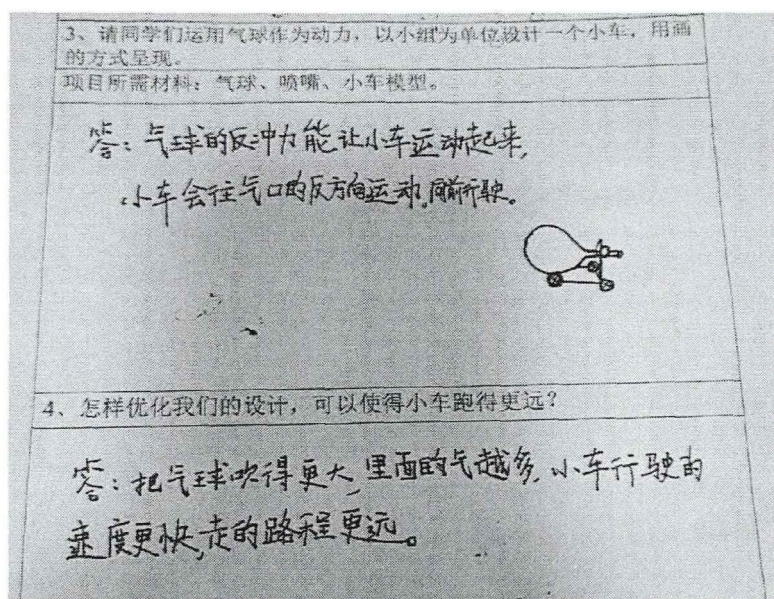 3、请同学们运用气球作为动力，以小组为单位设计一个小车，用画
的方式呈现。
项目所需材料：气球、喷嘴、小车模型。
答：气球的反冲力能让小车运动起来，
小车会往气口的反方向运动，向前行驶。
4、怎样优化我们的设计，可以使得小车跑得更远？
答：把气球吹得更大，里面的气越多，小车行驶的
速度更快，走的路程更远。